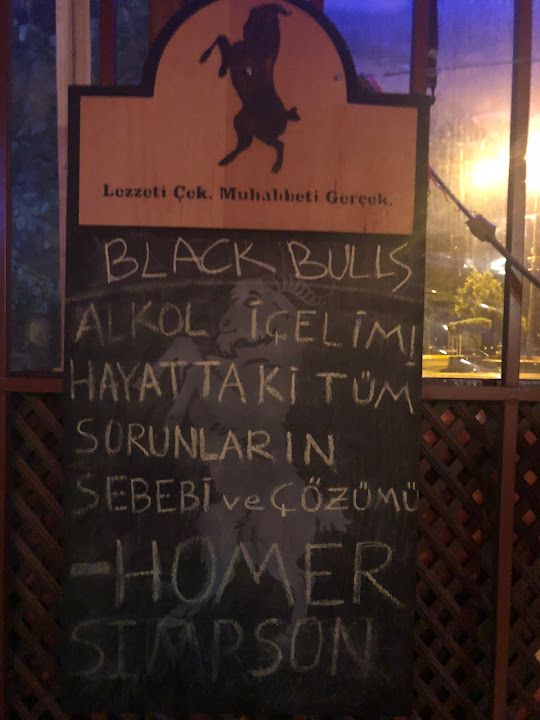 Lezzeti Çek. Muhabbeti Gerçek.
BLACK BULLS
ALKOL İÇELİM!
HAYATTAKİ TÜM
SORUNLARIN
SEBEBİ ve ÇÖZÜMÜ
-HOMER
SIMPSON